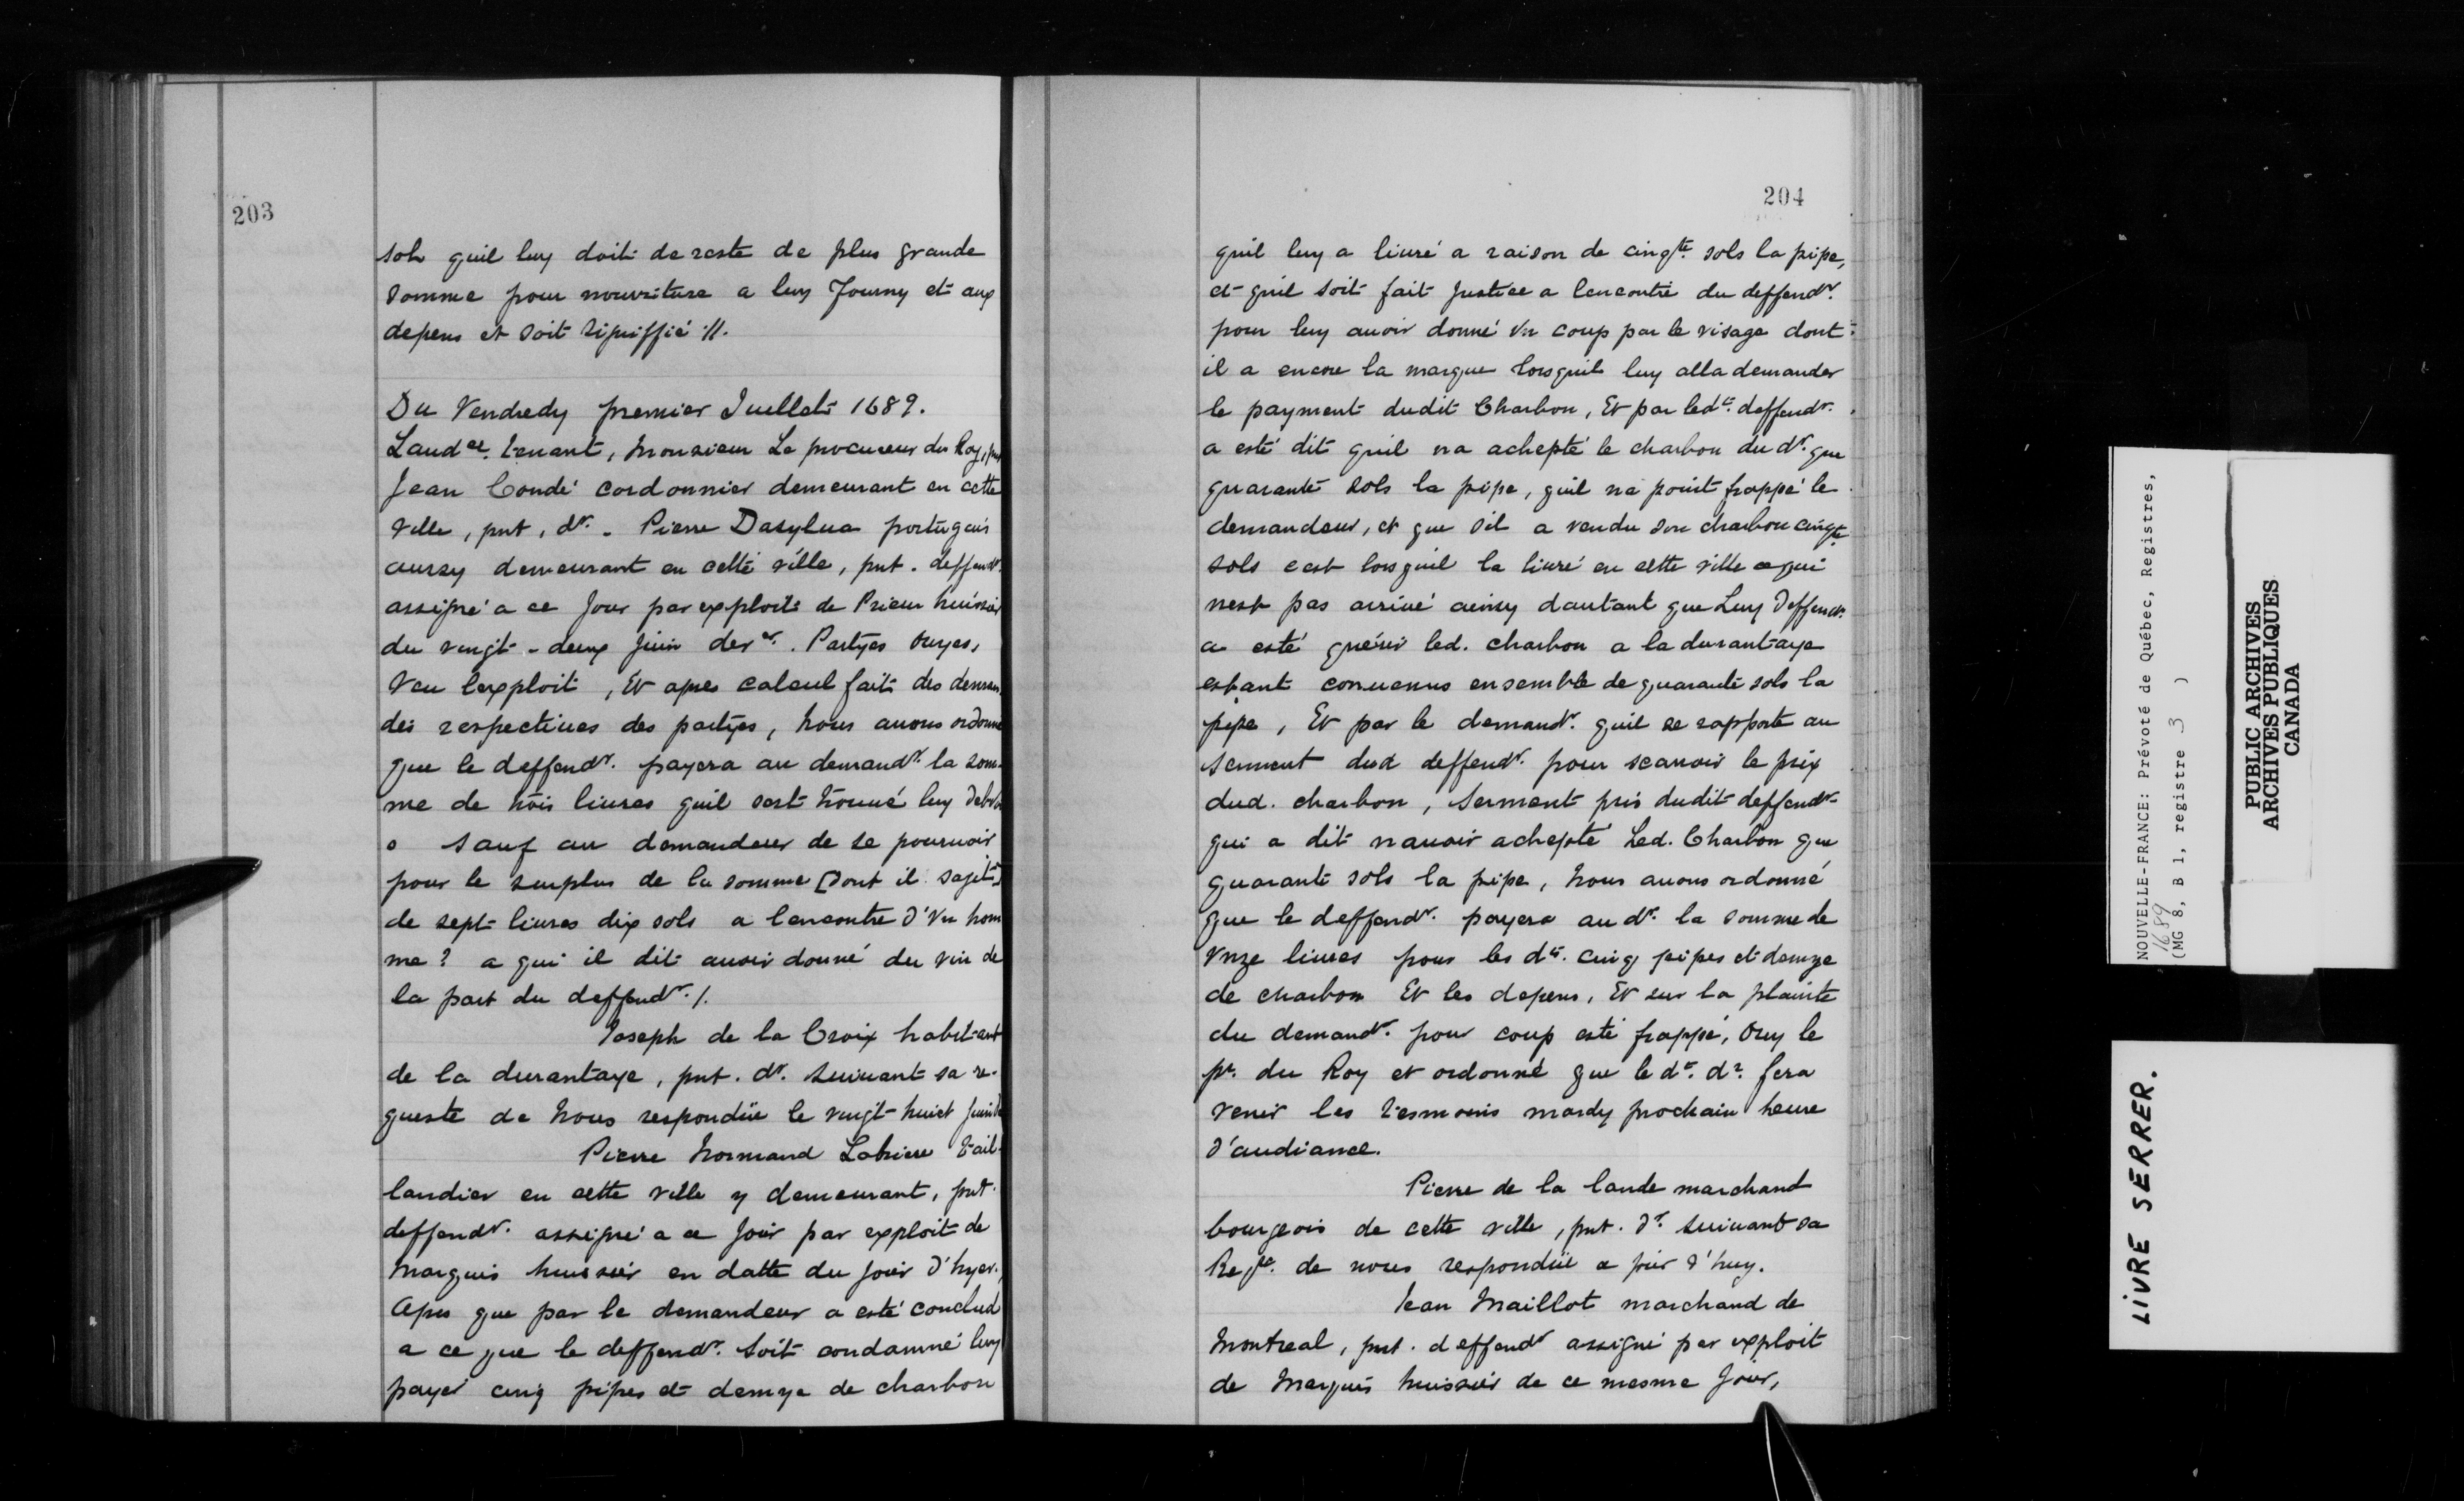 203
sols quil luy doit de reste de plus grande
somme pour nourriture a luy fourny et aux
depens et soit signiffié ://.
Du Vendredy premier Juillet 1689.
Laudce. tenant, Monsieur Le procureur du Roy, pnt
Jean Coudé cordonnier demeurant en cette
ville, pnt, dr. - Pierre Dasylua portugais
aussy demeurant en cette ville, pnt. deffendr.
assigné a ce Jour par exploit de Prieur huissier
du vingt-deux juin der er. Partyes ouyes,
Veu lexploit, Et apres calcul fait des deman
des respectiues des partyes, Nous auons ordonné
que le deffendr. payera au demandr. la som-
me de trois liures quil sest trouué luy debvoir
o sauf au demandeur de se pouruoir
pour le surplus de la somme [dont il sagit]
de sept liures dix sols a lencontre d'vn hom
me? a qui il dit auoir donné du vin de
la part du deffendr. /.
Joseph de la Croix habitant
de la durantaye, pnt. dr. suiuant sa re-
queste de Nous respondüe le vingt-huict juin
Pierre Normand Labriere tail-
landier en cette ville y demeurant, pnt.
deffendr. assigné a ce Jour par exploit de
Marquis huissier en datte du jour d'hyer.
Apres que par le demandeur a esté conclud
a ce que le deffendr. soit condamné luy
payer cinq pipes et demye de charbon
204
quil luy a liuré a raison de cinqte. sols la pipe,
et quil soit fait Justice a lencontre du deffendr.
pour luy auoir donné vn coup par le visage dont
il a encore la marque lorsquil luy alla demander
le payment dudit Charbon, Et par ledt. deffendr.
a esté dit quil na achepté le charbon du dr. que
quarante sols la pipe, quil na point frappé le
demandeur, et que sil a vendu son charbon cinqte
sols cest lorsquil la liuré en cette ville ce qui
nest pas arriué ainsy dautant que Luy deffendr.
a esté quérir led. charbon a la durantaye
estant conuenus ensemble de quarante sols la
pipe, Et par le demandr. quil se rapporte au
serment dud deffendr. pour scauoir le prix
dud. charbon, serment pris dudit deffendr.
qui a dit nauoir achepté Led. Charbon que
quarante sols la pipe, Nous auons ordonné
que le deffendr. payera au dr. la somme de
vnze liures pour les dts. cinq pipes et demye
de charbon Et les depens, Et sur la plainte
du demandr. pour coup esté frappé, Ouy le
pr. du Roy et ordonné que le dt. dr. fera
venir les tesmoins mardy prochain heure
d'audiance.
Pierre de la lande marchand
bourgeois de cette ville, pnt. dr. suiuant sa
Reqte. de nous respondüe a jour d'huy.
Jean Maillot marchand de
Montreal, pnt. deffendr assigné par exploit
de Marquis huissier de ce mesme Jour,
NOUVELLE-FRANCE: Prévoté de Québec, Registres,
1689
(MG 8, B 1, registre 3 )
PUBLIC ARCHIVES
ARCHIVES PUBLIQUES
CANADA
LIVRE SERRER.